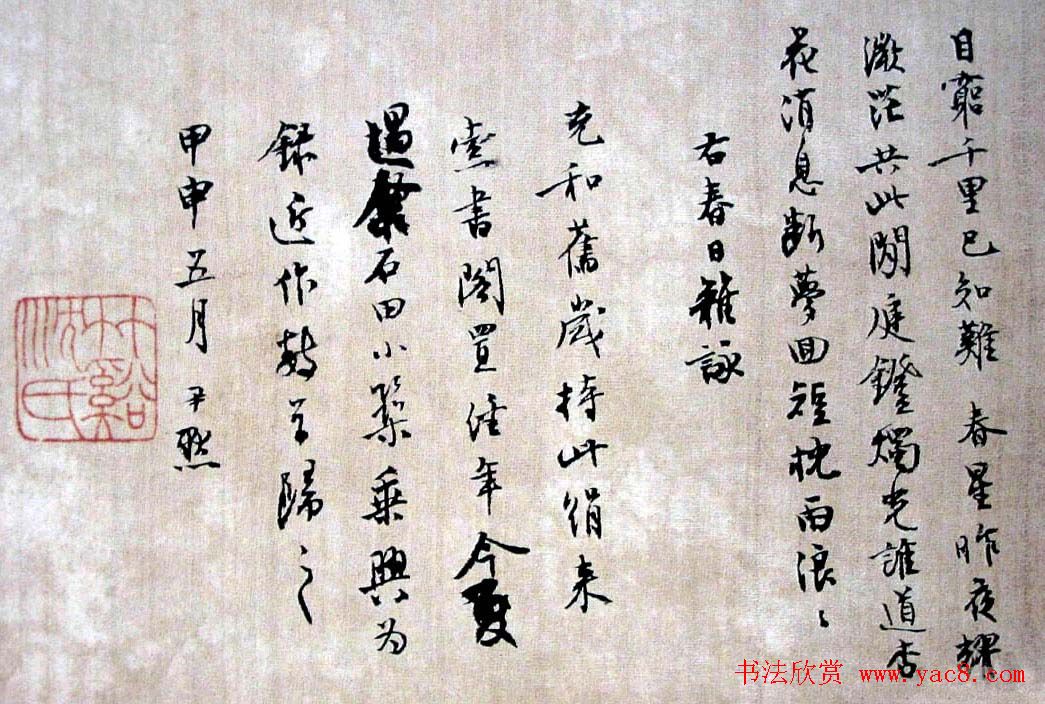 目窮千里已知難 春星昨夜耀
溦茫共此閒庭鐙燭光誰道杏
花消息斷夢回短枕雨浪〻
右春日雜詠
充和舊歲持此絹来
索書閣置經年今夏
過余石田小築乗興为
録近作數首歸之
甲申五月 尹默
竹谿沈氏
书法欣赏 www.yac8.com